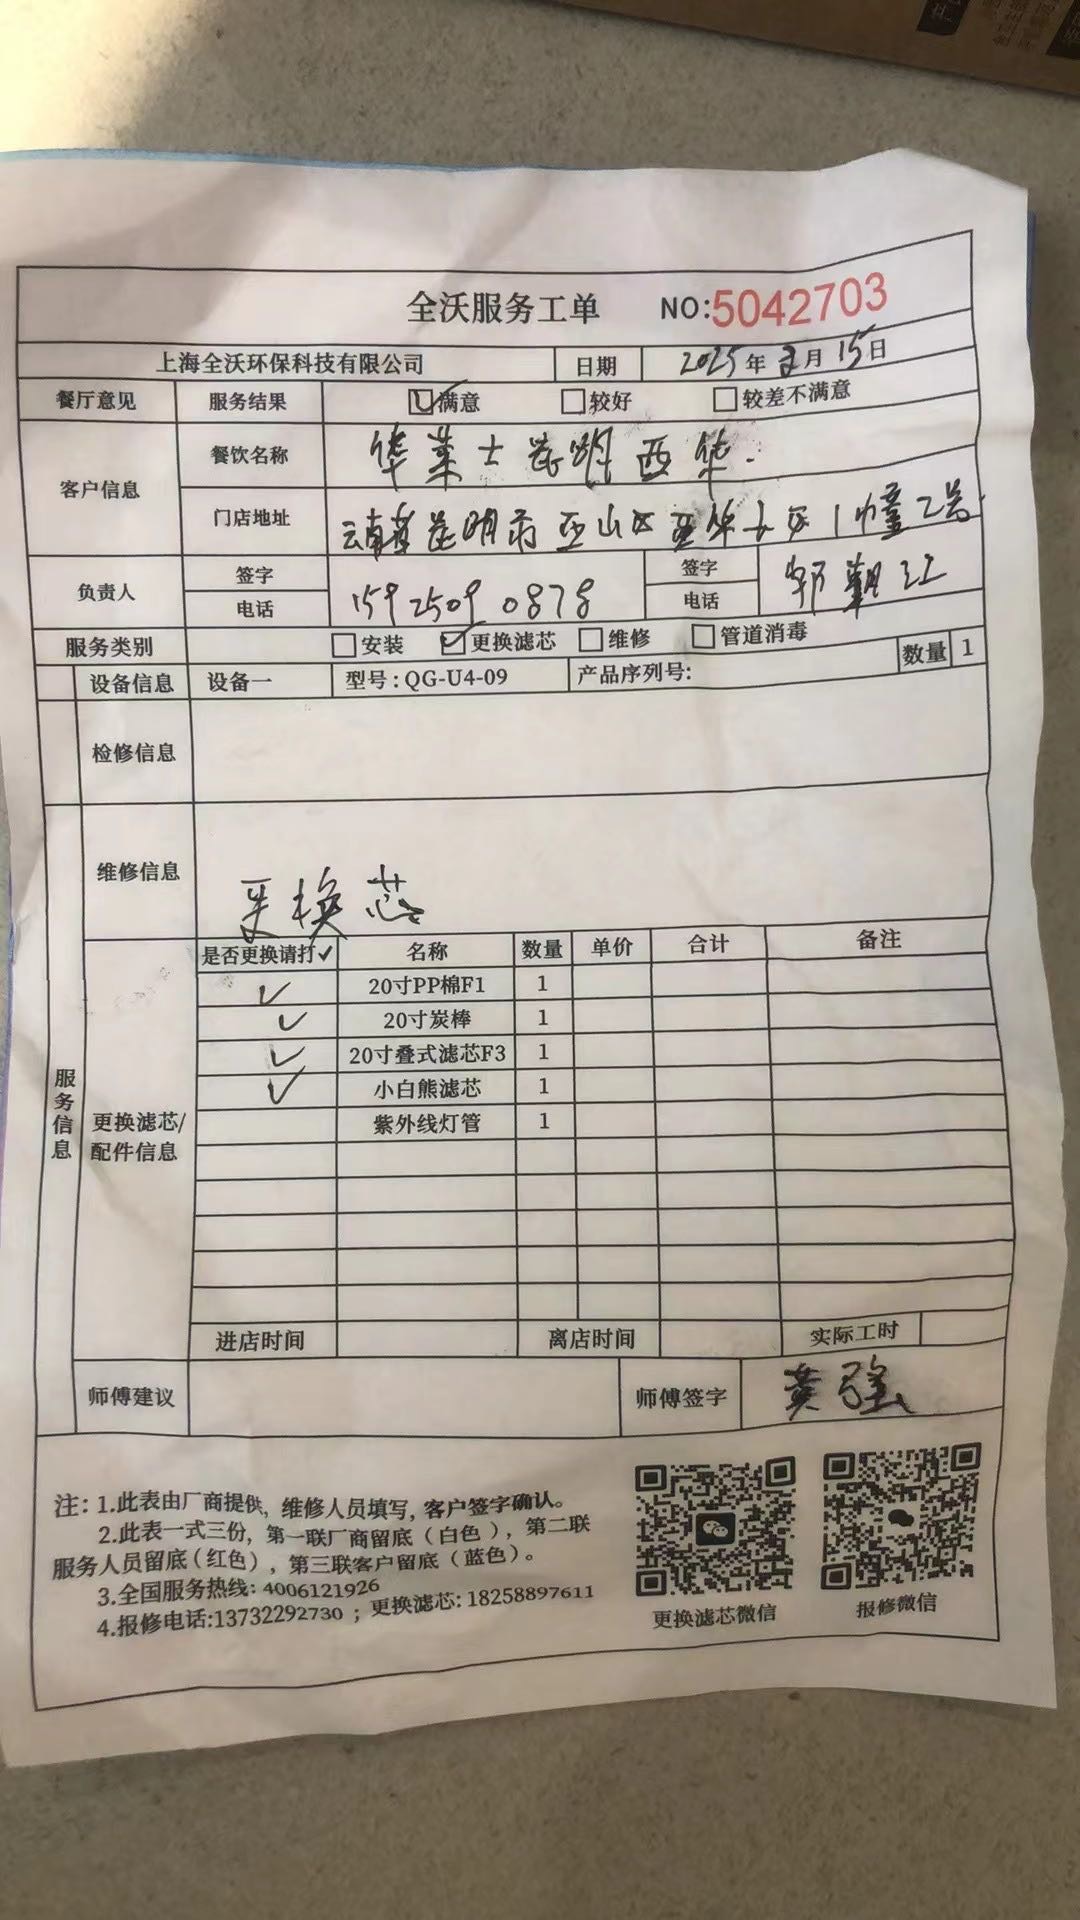 全沃服务工单 NO:5042703
上海全沃环保科技有限公司 日期 2025年2月15日
餐厅意见 服务结果 满意 较好 较差不满意
客户信息 餐饮名称 华莱士昆明西华.
门店地址 云南省昆明市西山区西华小区1幢2号
负责人 签字 签字 郭朝江
电话 159 2509 0878 电话
服务类别 安装 更换滤芯 维修 管道消毒
设备信息 设备一 型号:QG-U4-09 产品序列号: 数量 1
检修信息
维修信息 更换芯
服务信息
更换滤芯/配件信息
是否更换请打✓ 名称 数量 单价 合计 备注
✓ 20寸PP棉F1 1
✓ 20寸炭棒 1
✓ 20寸叠式滤芯F3 1
✓ 小白熊滤芯 1
紫外线灯管 1
进店时间 离店时间 实际工时
师傅建议 师傅签字 黄强
注: 1.此表由厂商提供, 维修人员填写, 客户签字确认。
2.此表一式三份, 第一联厂商留底(白色), 第二联
服务人员留底(红色), 第三联客户留底(蓝色)。
3.全国服务热线: 4006121926
4.报修电话:13732292730 ; 更换滤芯: 18258897611
更换滤芯微信 报修微信